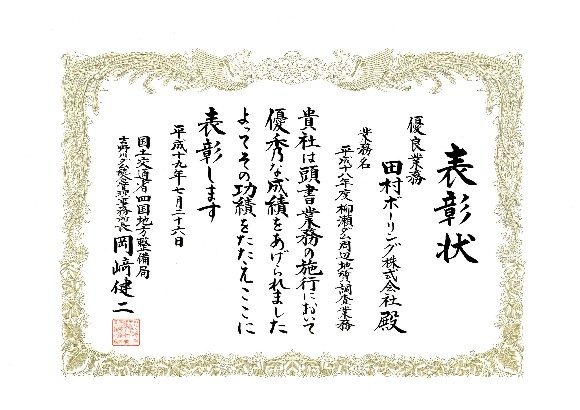 表彰状
優良業務
田村ボーリング株式会社 殿
業務名
平成十八年度柳瀬ダム周辺地質調査業務
貴社は頭書業務の施行において
優秀な成績をあげられました
よってその功績をたたえここに
表彰します
平成十九年七月二十六日
国土交通省四国地方整備局
吉野川ダム統合管理事務所長 岡﨑健二